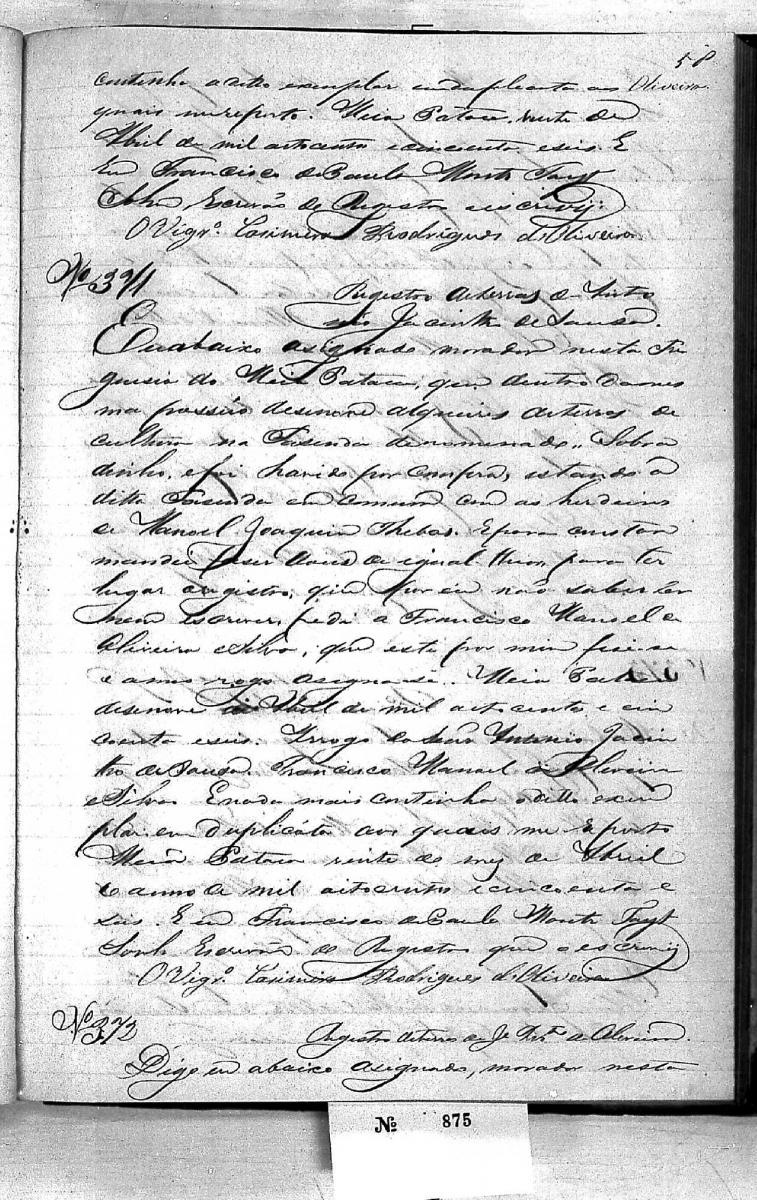 58
continha o ditto exemplar em duplicata aos Oliveira
quais me reporto. Meia Pataca, vinte de
Abril de mil oitocentos e cincoenta e seis. E
Eu Francisco de Paula Monte
Escrivão do Registro o escrivij
O Vigrº. Casimiro Rodrigues de Oliveira
Nº 371
Registro de terras de Anto
nio Jacintho de Sousa.
Eu abaixo asignado morador nesta Fre
guesia do Meia Pataca, que dentro da mes
ma possuo desenove alqueires de terras de
cultura na Fasenda denominada "Sobra
dinho, e foi havido por compra, estando a
ditta Fasenda em comum com os herdeiros
de Manoel Joaquim Thebas. E para constar
mandei faser dous de igual theor para ter
lugar o registro, que por eu não saber ler
nem escrever, pedi a Francisco Manoel de
Oliveira e Silva, que este por mim fisesse
e a meu rogo asignasse. Meia Pataca
desenove de Abril de mil oitocentos e cin
coenta e seis. Arrogo do Senr Antonio Jacin
tho de Sousa. Francisco Manoel de Oliveira
e Silva. E nada mais continha o ditto exem
plar em duplicata aos quais me reporto
Meia Pataca vinte do mez de Abril
do anno de mil oitocentos e cincoenta e
seis. E eu Francisco de Paula Monte
Escrivão do Registro que o escrivij
O Vigrº. Casimiro Rodrigues de Oliveira
Nº 372
Registro de terras de Je de Oliveira.
Digo eu abaixo asignado, morador nesta
Nº 875